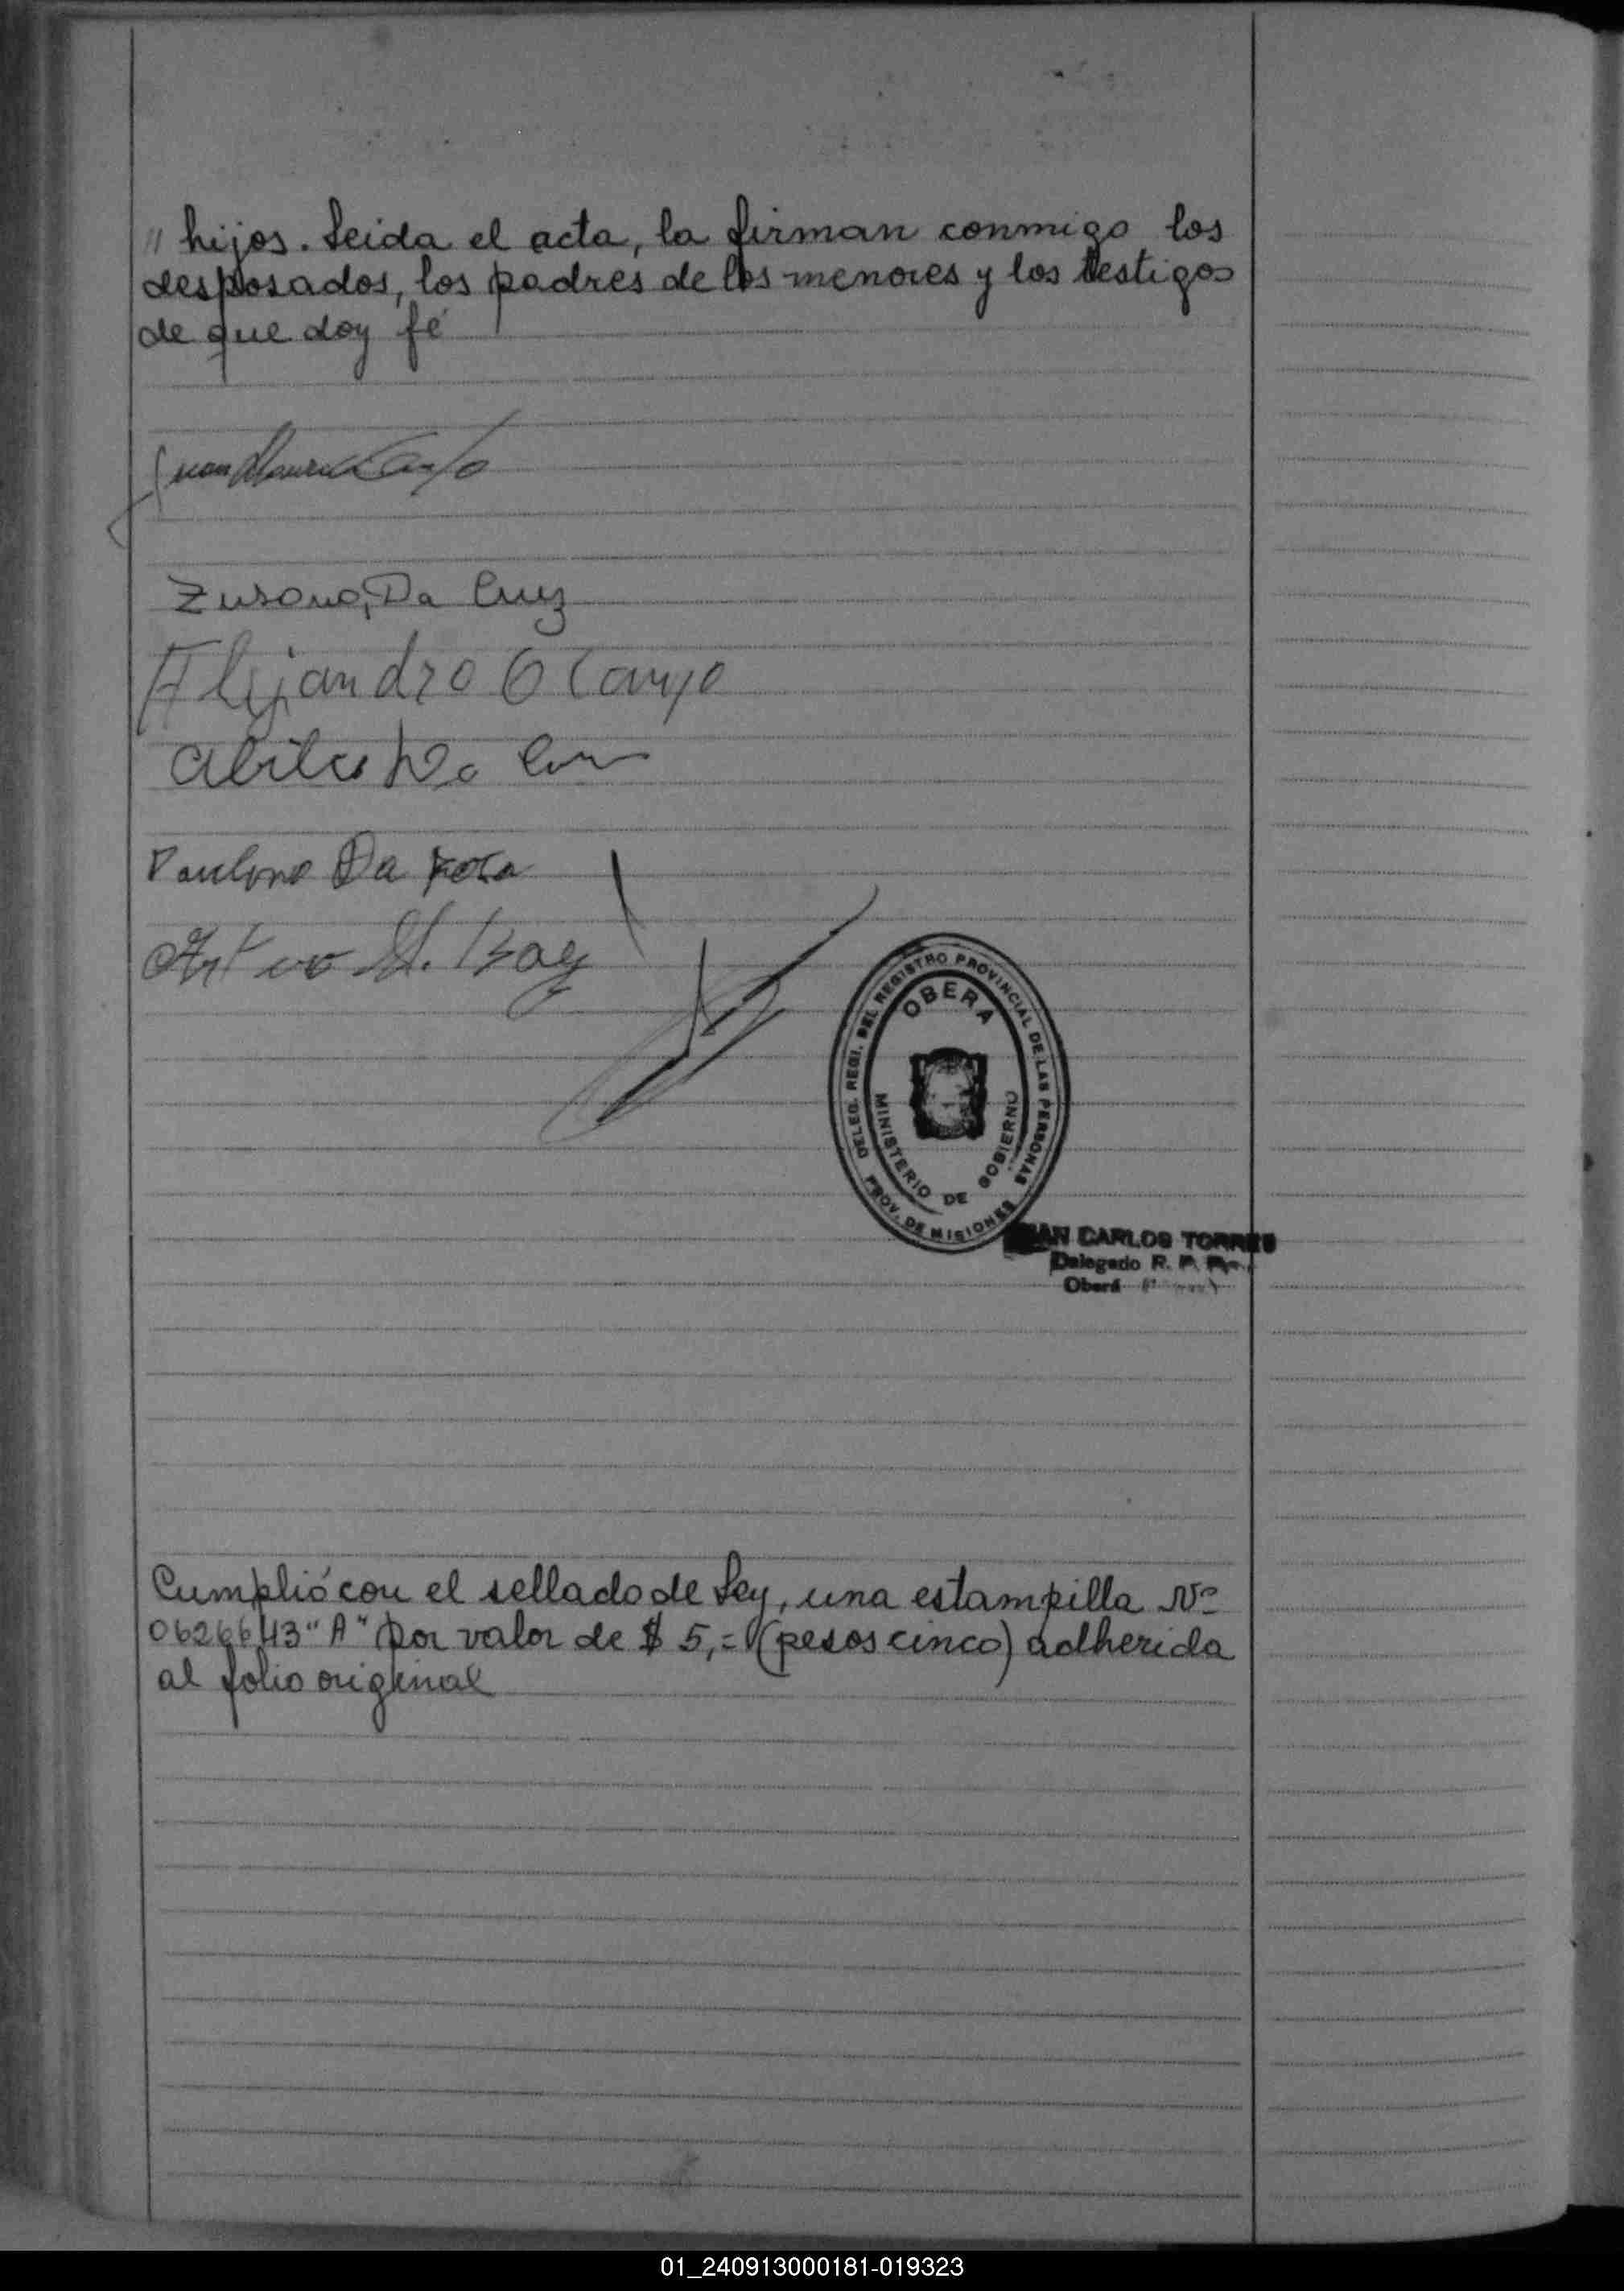 " hijos. Leida el acta, la firman conmigo los
desposados, los padres de los menores y los testigos
de que doy fé
Juan
Zusana, Da Cruz
Alijandro Ocampo
Da
Paulino Da Rosa
DELEG. REGI. DEL REGISTRO PROVINCIAL DE LAS PERSONAS
OBERA
MINISTERIO DE GOBIERNO
PROV. DE MISIONES
CARLOS TORRES
Delegado R. P.
Oberá
Cumplió con el sellado de Ley, una estampilla Nº
0626643 "A" por valor de $ 5,= (pesos cinco) adherida
al folio original
01_240913000181-019323